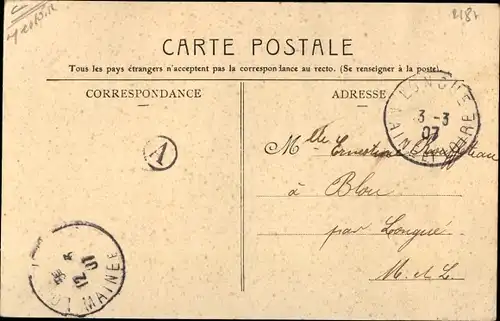 2187
CARTE POSTALE
Tous les pays étrangers n'acceptent pas la correspondance au recto. (Se renseigner à la poste).
CORRESPONDANCE
ADRESSE
LONGUÉ
3 - 3
07
MAINE ET LOIRE
A
Mlle Ernestine
à Blou
par Longué
M. et L.
MAINE